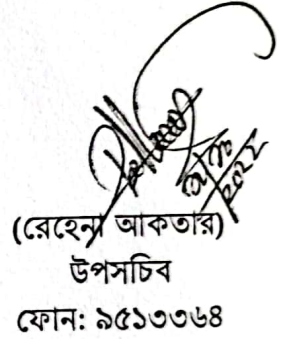 (রেহেনা আকতার)
উপসচিব
ফোন: ৯৫১৩৩৬৪